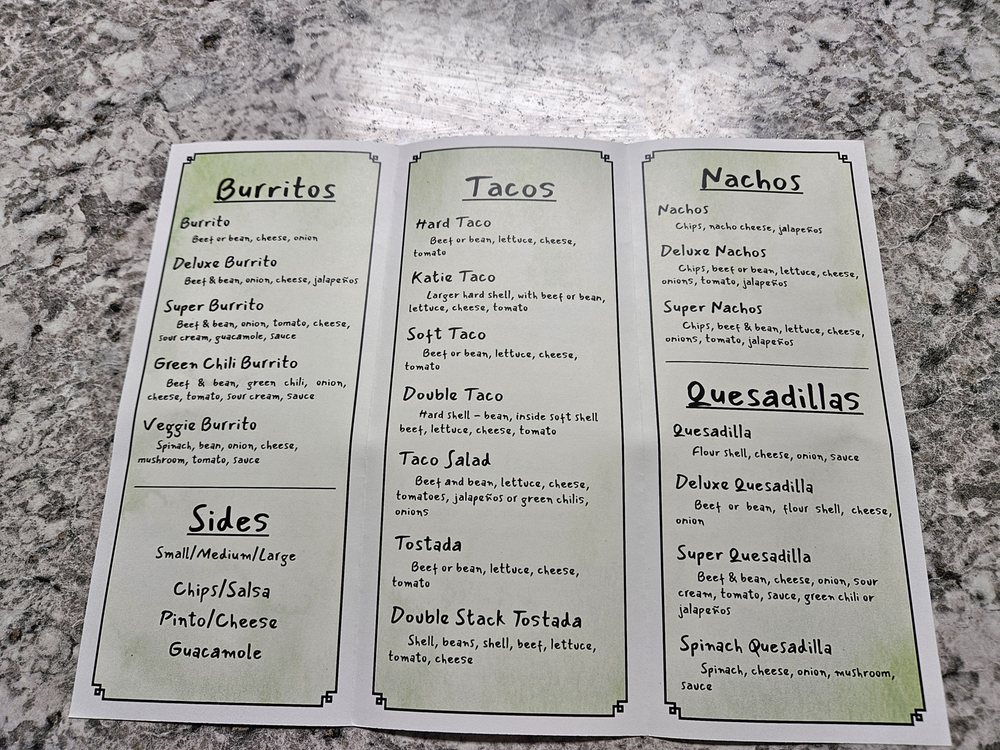 Burritos
Burrito
Beef or bean, cheese, onion
Deluxe Burrito
Beef & bean, onion, cheese, jalapeños
Super Burrito
Beef & bean, onion, tomato, cheese,
sour cream, guacamole, sauce
Green Chili Burrito
Beef & bean, green chili, onion,
cheese, tomato, sour cream, sauce
Veggie Burrito
Spinach, bean, onion, cheese,
mushroom, tomato, sauce
Sides
Small/Medium/Large
Chips/Salsa
Pinto/Cheese
Guacamole
Tacos
Hard Taco
Beef or bean, lettuce, cheese,
tomato
Katie Taco
Larger hard shell, with beef or bean,
lettuce, cheese, tomato
Soft Taco
Beef or bean, lettuce, cheese,
tomato
Double Taco
Hard shell – bean, inside soft shell
beef, lettuce, cheese, tomato
Taco Salad
Beef and bean, lettuce, cheese,
tomatoes, jalapeños or green chilis,
onions
Tostada
Beef or bean, lettuce, cheese,
tomato
Double Stack Tostada
Shell, beans, shell, beef, lettuce,
tomato, cheese
Nachos
Nachos
Chips, nacho cheese, jalapeños
Deluxe Nachos
Chips, beef or bean, lettuce, cheese,
onions, tomato, jalapeños
Super Nachos
Chips, beef & bean, lettuce, cheese,
onions, tomato, jalapeños
Quesadillas
Quesadilla
Flour shell, cheese, onion, sauce
Deluxe Quesadilla
Beef or bean, flour shell, cheese,
onion
Super Quesadilla
Beef & bean, cheese, onion, sour
cream, tomato, sauce, green chili or
jalapeños
Spinach Quesadilla
Spinach, cheese, onion, mushroom,
sauce